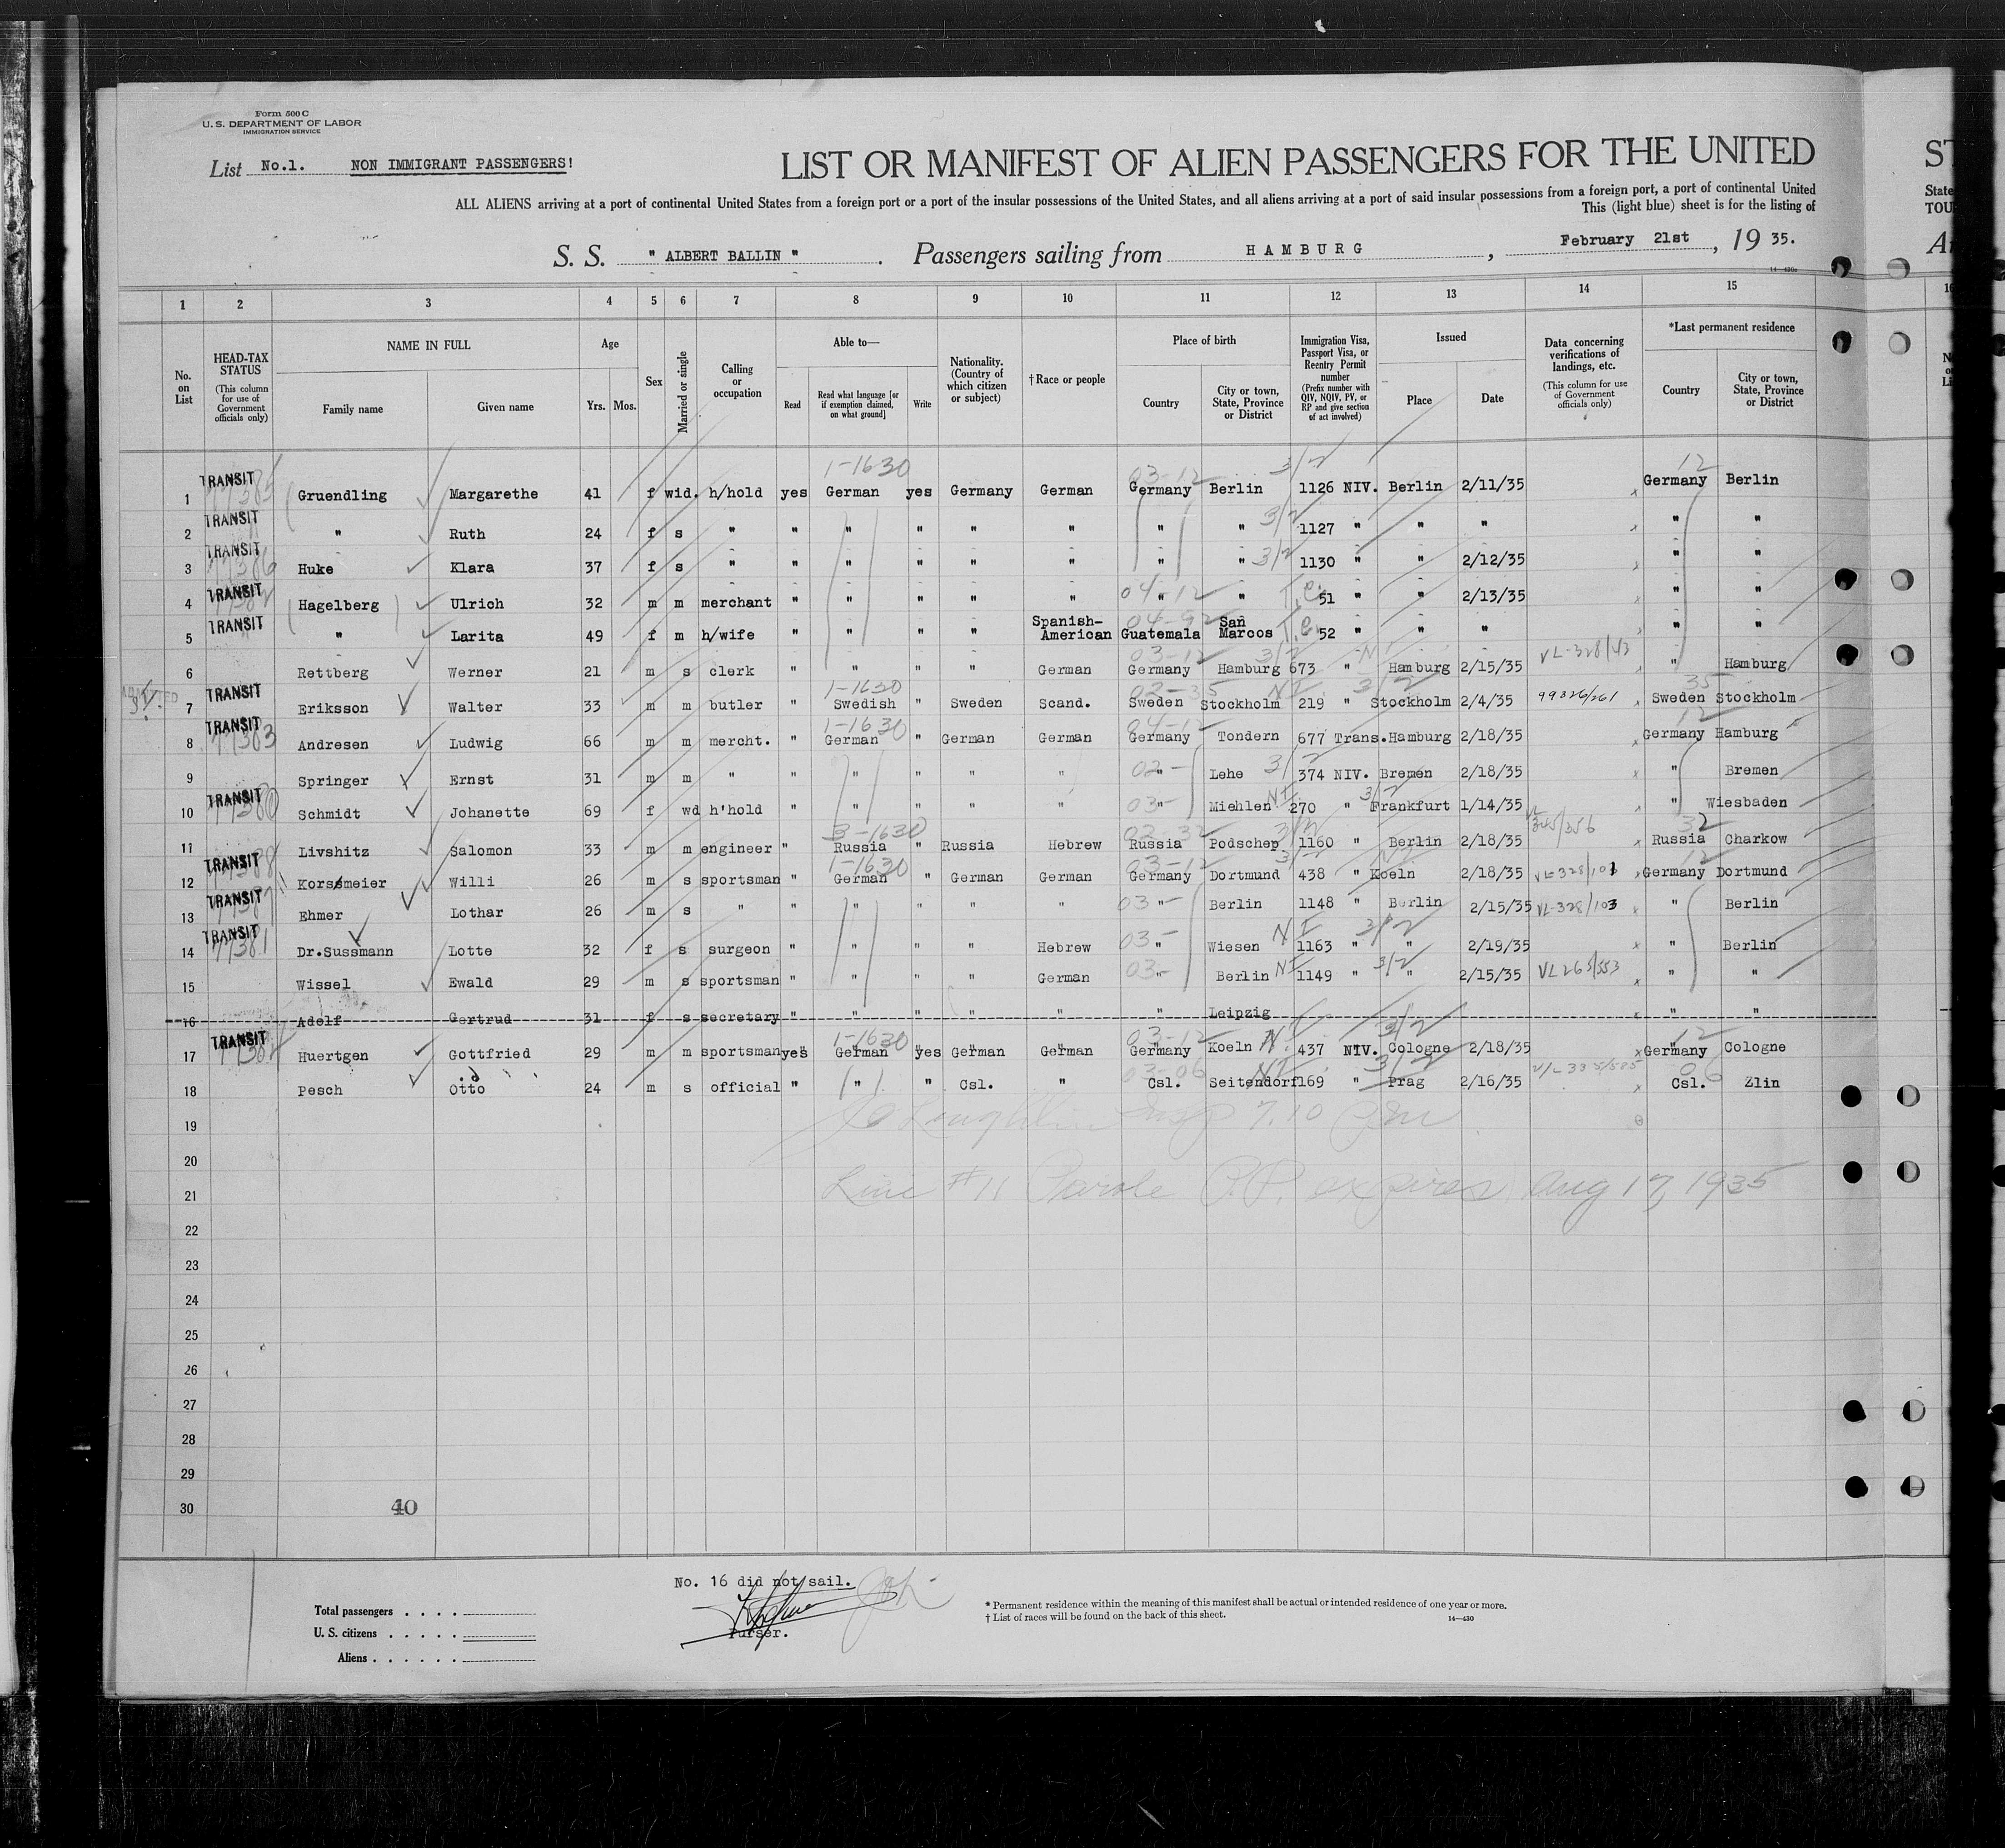 Form 500 C
U. S. DEPARTMENT OF LABOR
IMMIGRATION SERVICE
List No.1. NON IMMIGRANT PASSENGERS!
LIST OR MANIFEST OF ALIEN PASSENGERS FOR THE UNITED
ST
ALL ALIENS arriving at a port of continental United States from a foreign port or a port of the insular possessions of the United States, and all aliens arriving at a port of said insular possessions from a foreign port, a port of continental United
State
This (light blue) sheet is for the listing of
TOU
S. S. " ALBERT BALLIN " . Passengers sailing from HAMBURG , February 21st , 19 35.
14—430
1 2 3 4 5 6 7 8 9 10 11 12 13 14 15 16
No. on List
HEAD-TAX STATUS (This column for use of Government officials only)
NAME IN FULL
Family name Given name
Age
Yrs. Mos.
Sex
Married or single
Calling or occupation
Able to—
Read Read what language [or if exemption claimed, on what ground] Write
Nationality. (Country of which citizen or subject)
†Race or people
Place of birth
Country City or town, State, Province or District
Immigration Visa, Passport Visa, or Reentry Permit number (Prefix number with QIV, NQIV, PV, or RP and give section of act involved)
Issued
Place Date
Data concerning verifications of landings, etc. (This column for use of Government officials only)
*Last permanent residence
Country City or town, State, Province or District
1-1630 03-12 3/2 12
1 TRANSIT Gruendling Margarethe 41 f wid. h/hold yes German yes Germany German Germany Berlin 1126 NIV. Berlin 2/11/35 Germany Berlin
2 TRANSIT " Ruth 24 f s " " " " " " " " 3/2 1127 " " " " "
3 TRANSIT Huke Klara 37 f s " " " " " " " " 3/2 1130 " " 2/12/35 " "
4 TRANSIT Hagelberg Ulrich 32 m m merchant " " " " " 04-12 " " 51 " " 2/13/35 " "
5 TRANSIT " Larita 49 f m h/wife " " " " Spanish-American 04-92 Guatemala San Marcos 52 " " " " "
6 Rettberg Werner 21 m s clerk " " " " German 03-12 Germany Hamburg 3/2 673 " Hamburg 2/15/35 VL-328/43 " Hamburg
7 ADMITTED TRANSIT Eriksson Walter 33 m m butler " 1-1630 Swedish " Sweden Scand. 02-35 Sweden Stockholm NI 219 " 3/2 Stockholm 2/4/35 99326/261 35 Sweden Stockholm
8 TRANSIT Andresen Ludwig 66 m m mercht. " 1-1630 German " German German 04-12 Germany Tondern 677 Trans. Hamburg 2/18/35 12 Germany Hamburg
9 Springer Ernst 31 m m " " " " " " 02- " Lehe 3/2 374 NIV. Bremen 2/18/35 " Bremen
10 TRANSIT Schmidt Johanette 69 f wd h'hold " " " " " 03- " Miehlen NI 270 " 3/2 Frankfurt 1/14/35 " Wiesbaden
11 Livshitz Salomon 33 m m engineer " 3-1630 Russia " Russia Hebrew 02-32 Russia Podschep 3/2 1160 " Berlin 2/18/35 VL 345/356 32 Russia Charkow
12 TRANSIT Korssmeier Willi 26 m s sportsman " 1-1630 German " German German 03-12 Germany Dortmund 438 " Koeln 2/18/35 VL-328/101 12 Germany Dortmund
13 TRANSIT Ehmer Lothar 26 m s " " " " " " 03- " Berlin 1148 " Berlin 2/15/35 VL-328/103 " Berlin
14 TRANSIT Dr.Sussmann Lotte 32 f s surgeon " " " " Hebrew 03- " Wiesen NI 1163 " 3/2 " 2/19/35 " Berlin
15 Wissel Ewald 29 m s sportsman " " " " German 03- " Berlin NI 1149 " 3/2 " 2/15/35 VL 265/553 " "
16 Adolf Gertrud 31 f s secretary " " " " " " Leipzig " "
17 TRANSIT Huertgen Gottfried 29 m m sportsman yes 1-1630 German yes German German 03-12 Germany Koeln NI 437 NIV. 3/2 Cologne 2/18/35 12 Germany Cologne
18 Pesch Otto 24 m s official " " " Csl. " 03-06 Csl. Seitendorf NI 169 " 3/2 Prag 2/16/35 VL-335/585 06 Csl. Zlin
19
20
21 Line #11 Parole P.P. expires Aug 17, 1935
22
23
24
25
26
27
28
29
30 40
No. 16 did not sail.
Purser.
Total passengers . . . .
U. S. citizens . . . . .
Aliens . . . . . .
* Permanent residence within the meaning of this manifest shall be actual or intended residence of one year or more.
† List of races will be found on the back of this sheet.
14—430